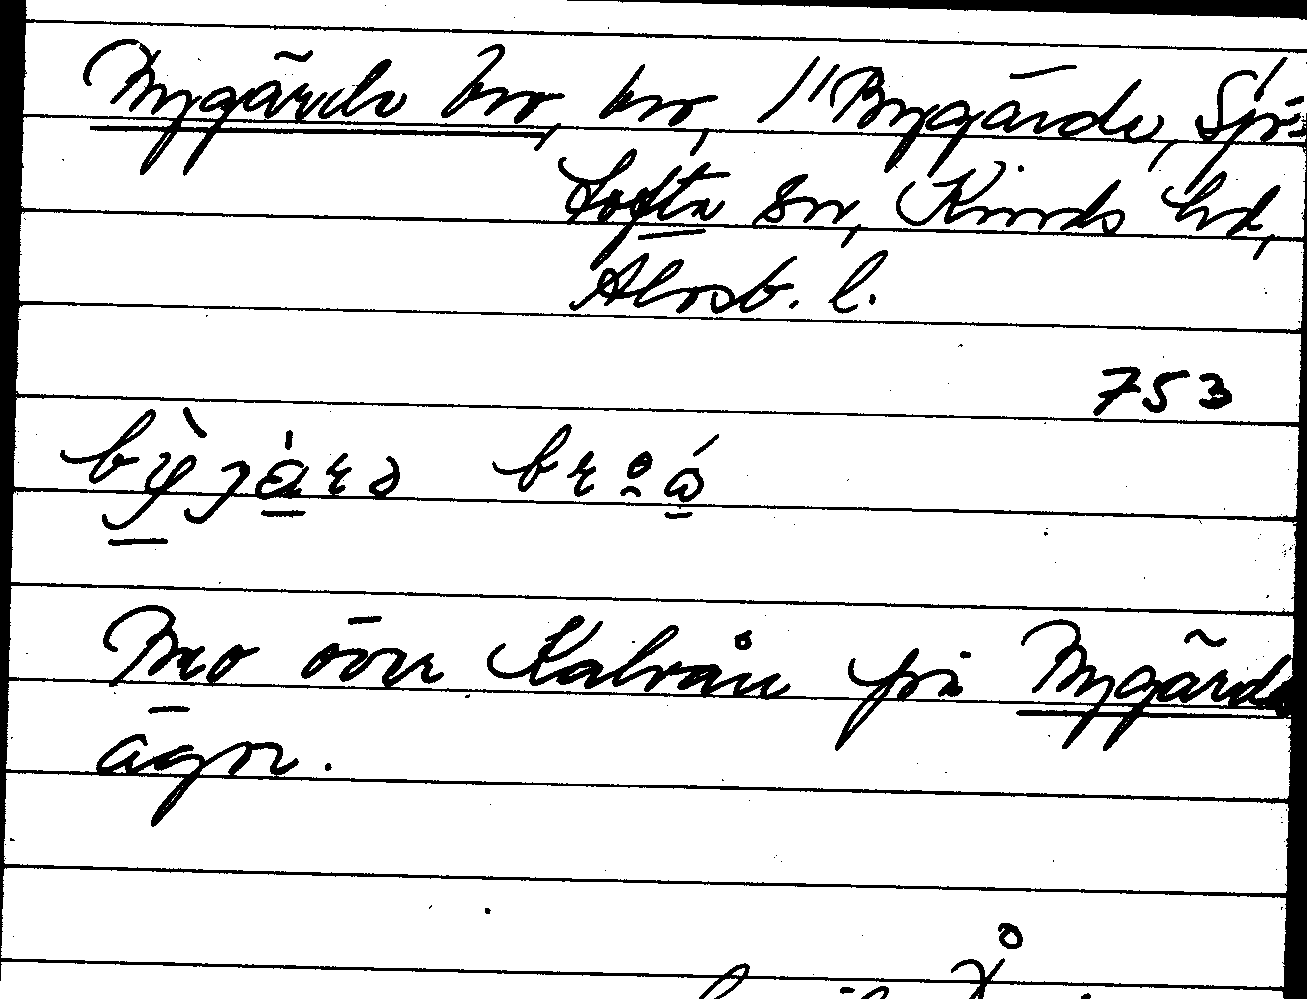 Bygärde bro, bro, 1/1 Bygärde,
Tofta sn, Kinds hd,
Älvsb. l.
753
bỳjàrə
Bro över Kalvån på Bygärde
ägor.